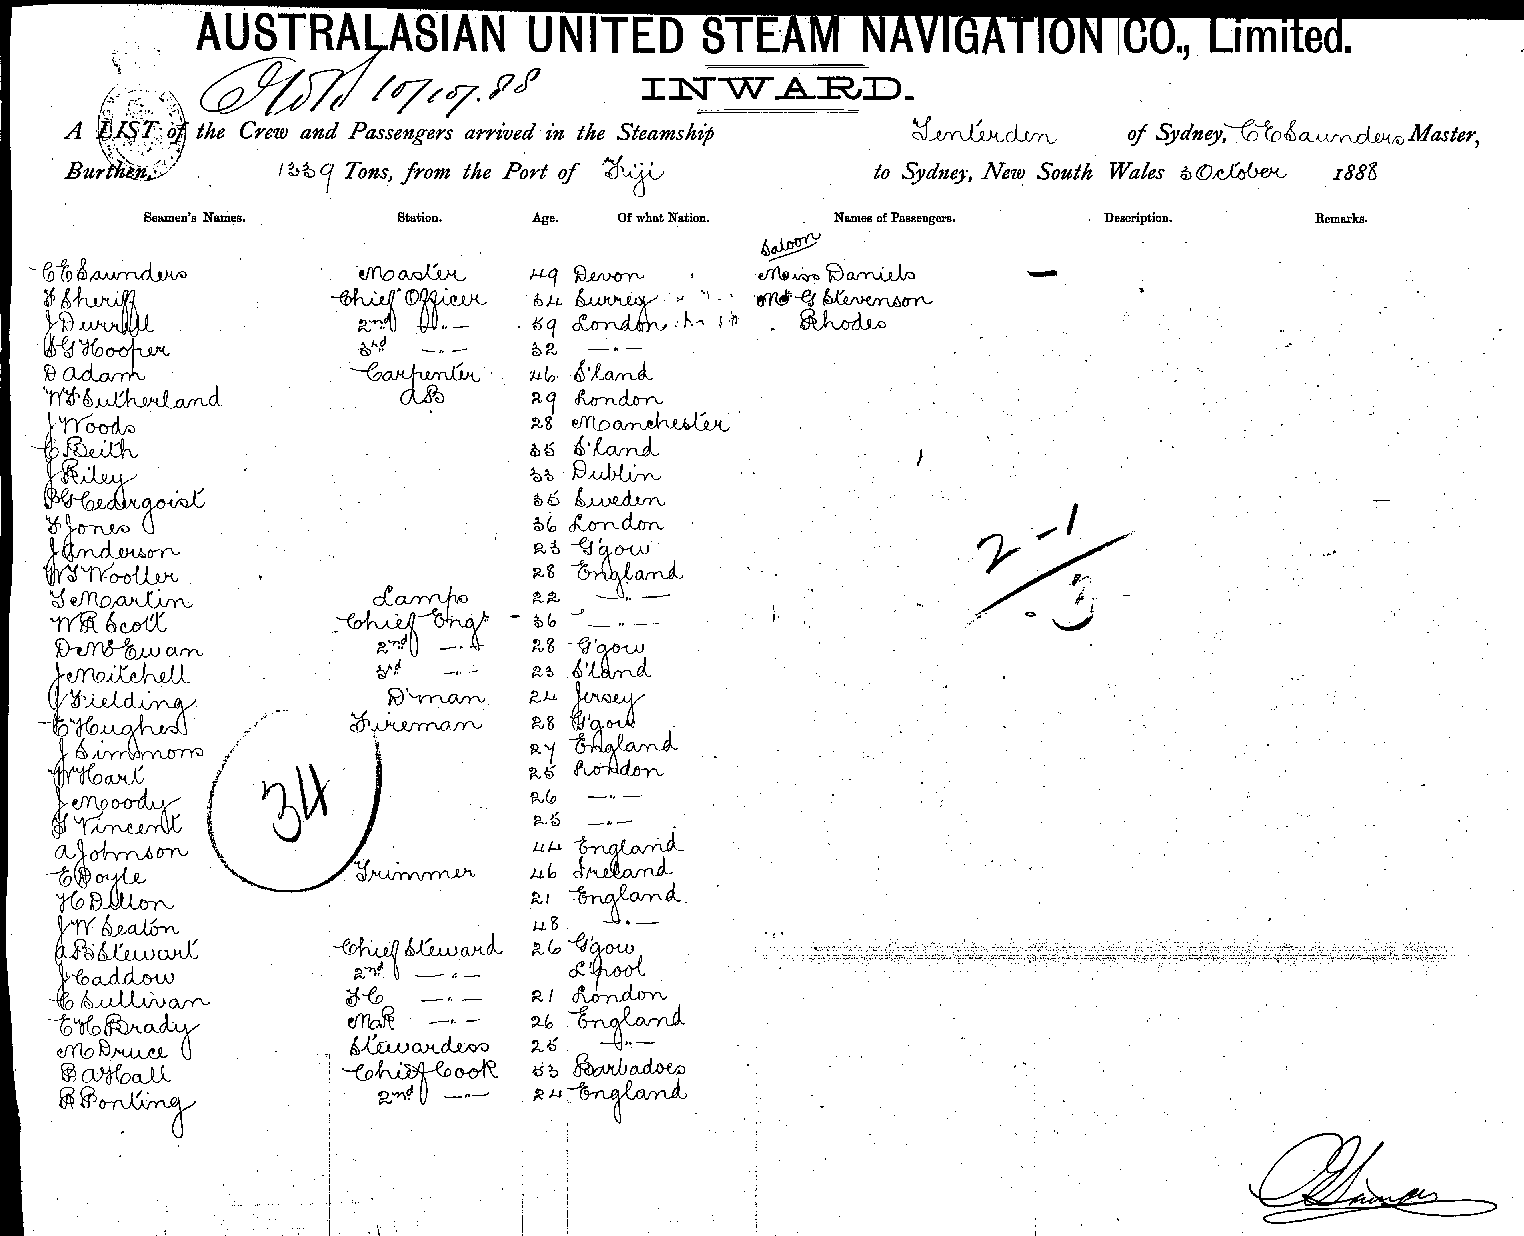 AUSTRALASIAN UNITED STEAM NAVIGATION CO., Limited.
10/10/.88
INWARD.
A LIST of the Crew and Passengers arrived in the Steamship Tenterden of Sydney, C E Saunders Master,
Burthen, 1339 Tons, from the Port of Fiji to Sydney, New South Wales 3 October 1888
Seamen's Names. Station. Age. Of what Nation. Names of Passengers. Description. Remarks.
Saloon
C E Saunders Master 49 Devon Miss Daniels —
F Sheriff Chief Officer 34 Surrey Mr G Stevenson
J Durrell 2nd —"— 39 London Rhodes
S G Hooper 3rd —"— 32 —"—
D Adam Carpenter 46 S'land
W F Sutherland AB 29 London
J Woods 28 Manchester
C Beith 35 S'land
J Riley 33 Dublin
P G Cedergoist 35 Sweden
F Jones 36 London
J Anderson 23 G'gow
W F Wooller 28 England
T Martin Lamps 22 —"—
W R Scott Chief Engr 36 —"—
D McEwan 2nd —"— 28 G'gow
J Mitchell 3rd —"— 23 S'land
J Fielding D'man 24 Jersey
E Hughes Fireman 28 G'gow
J Simmons 27 England
W Hart 25 London
J Moody 26 —"—
F Vincent 25 —"—
A Johnson 44 England
E Doyle Trimmer 46 Ireland
H Dillon 21 England
J W Seaton 48 —"—
A B Stewart Chief Steward 26 G'gow
J Caddow 2nd —"— L'pool
C Sullivan F C —"— 21 London
E H Brady M R —"— 26 England
M Druce Stewardess 25 —"—
B A Hall Chief Cook 33 Barbadoes
R Ponting 2nd —"— 24 England
34
2-1
3